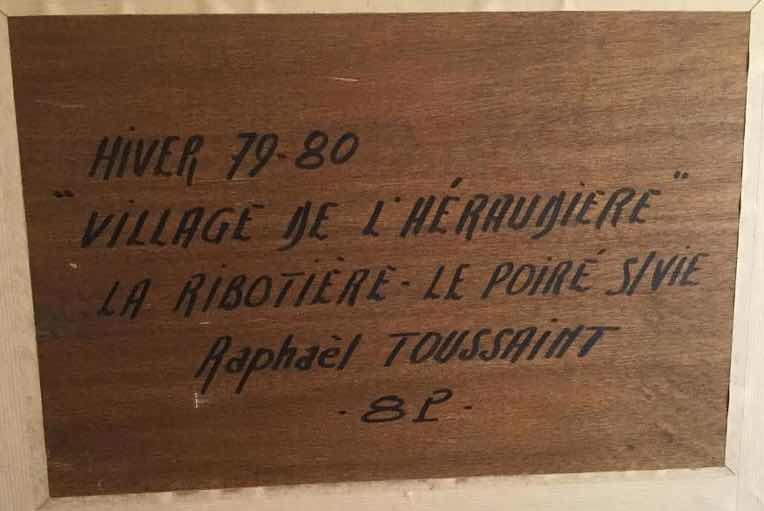 HiVER 79-80
"VILLAGE DE L'HÉRAUDIERE"
LA RIBOTIÈRE - LE POIRÉ S/VIE
Raphaël TOUSSAINT
- 8P -